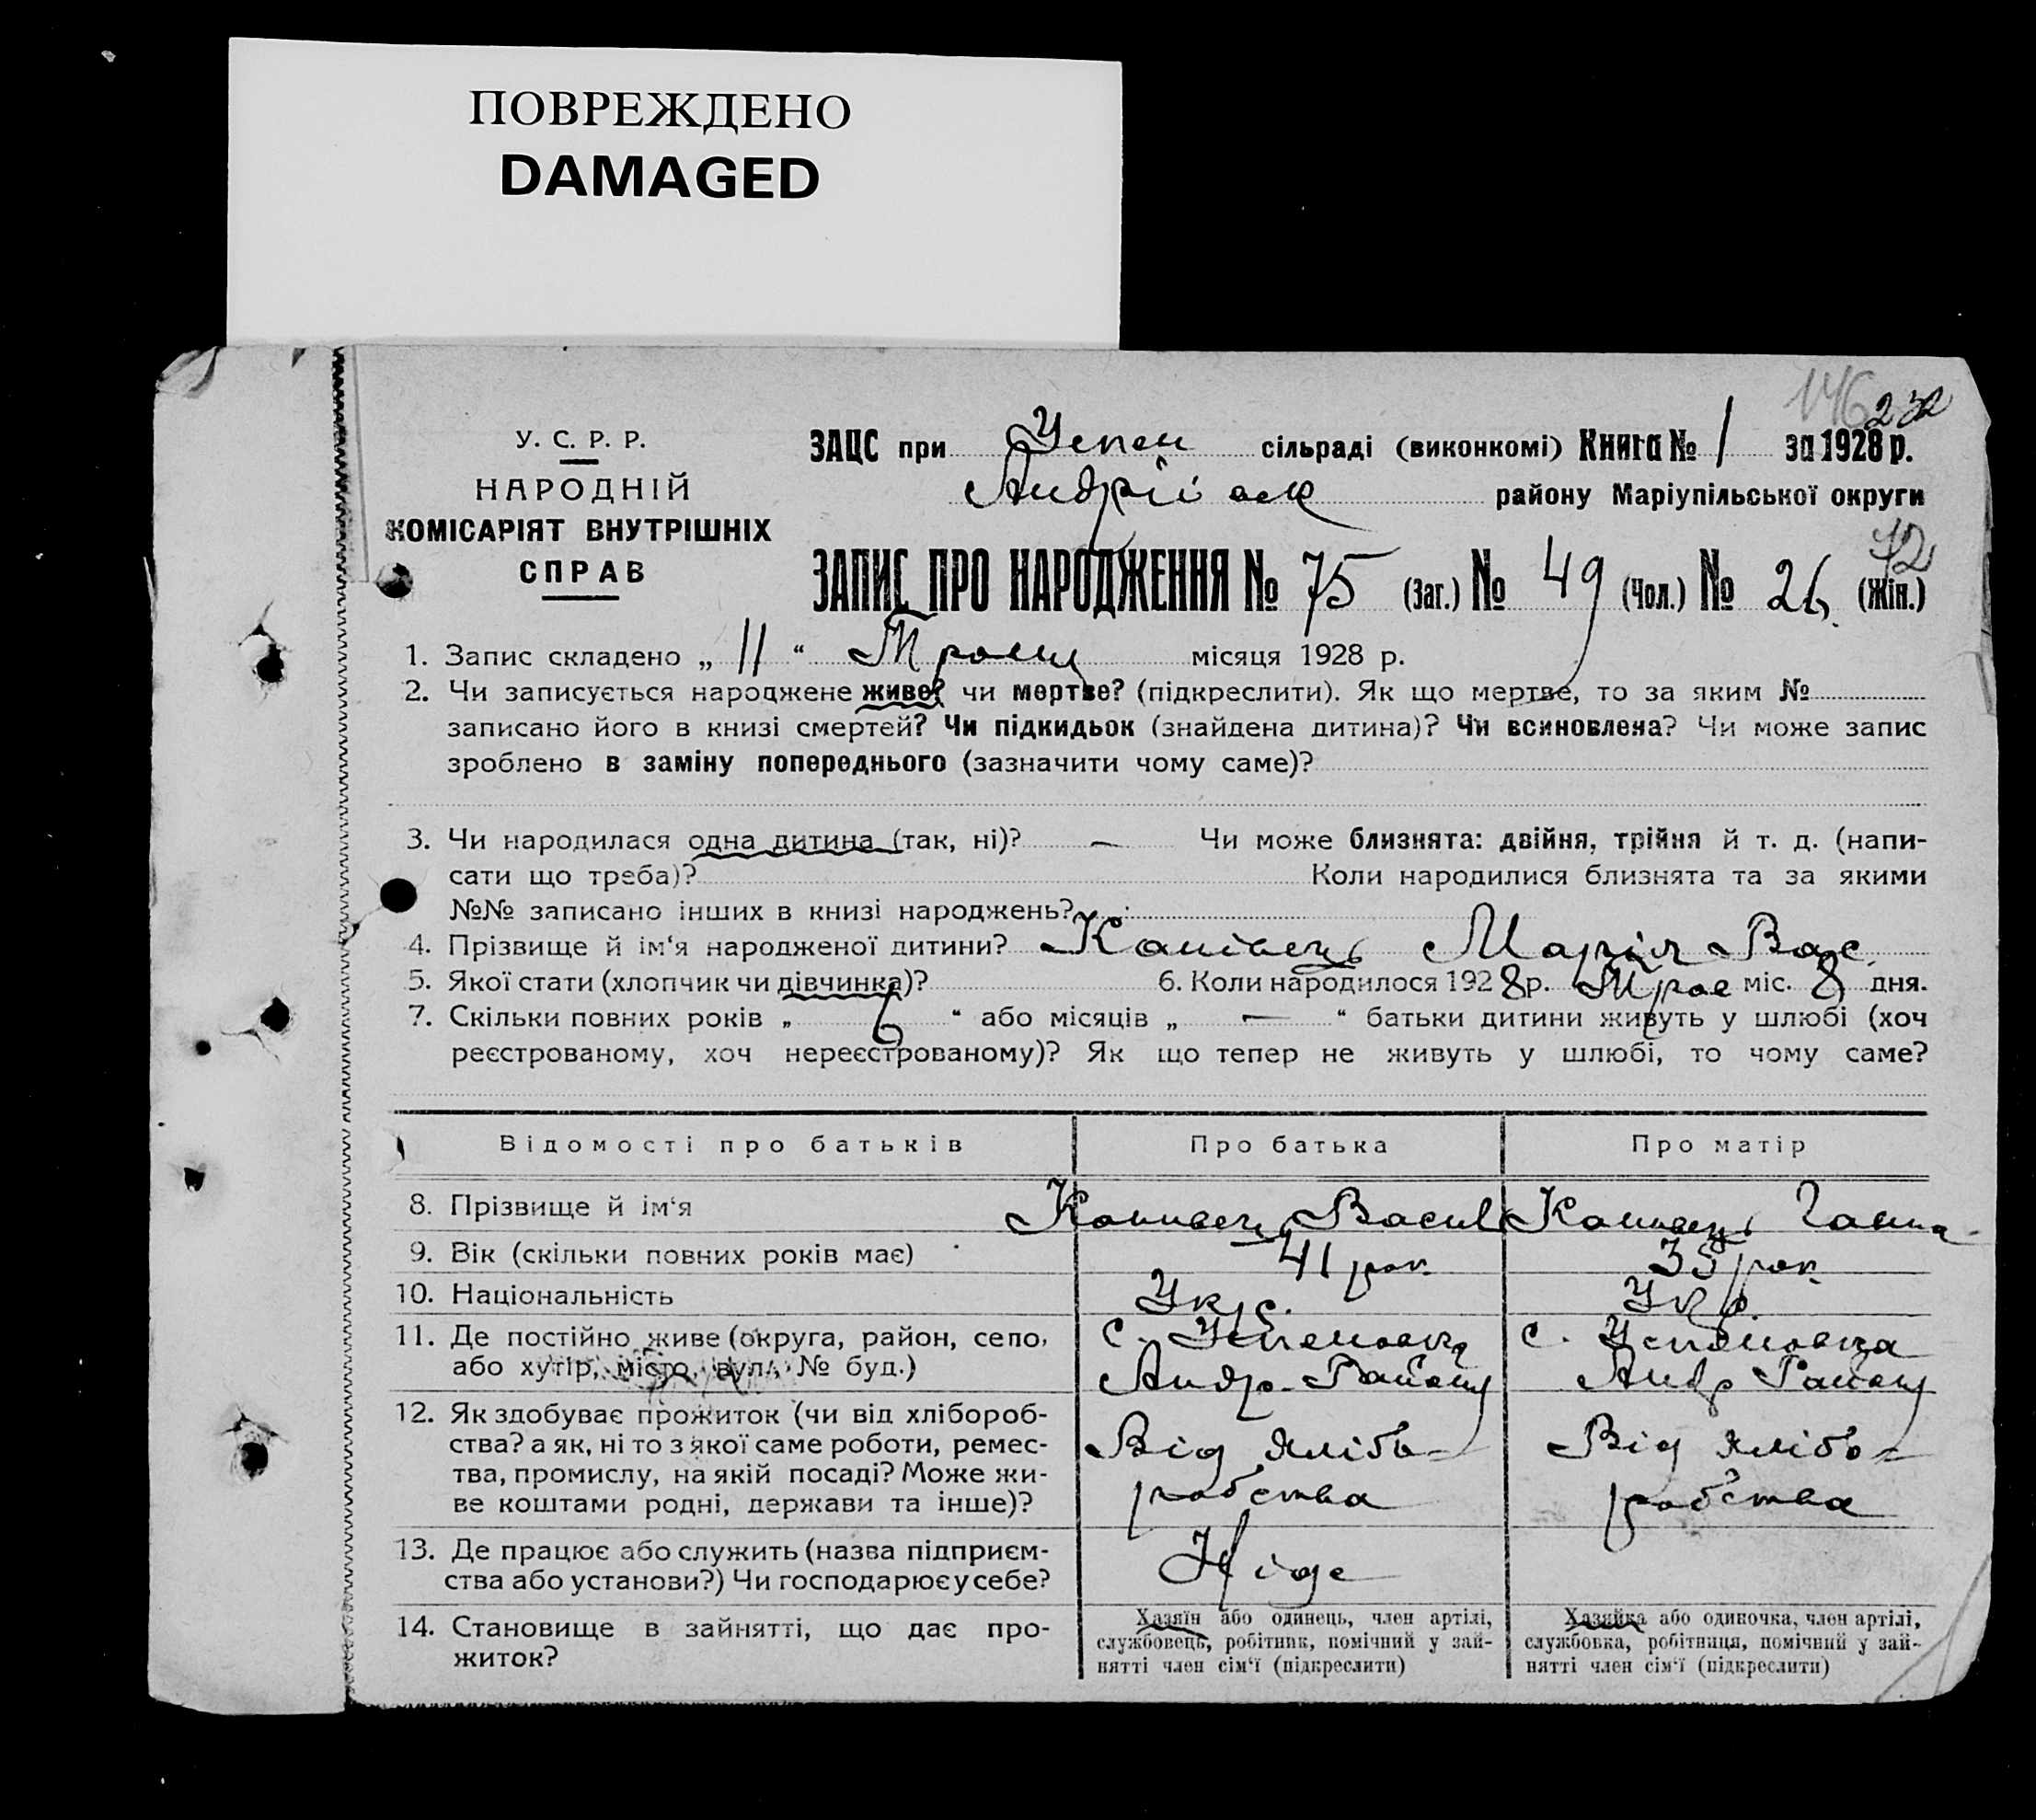 ПОВРЕЖДЕНО
DAMAGED
146 232
У. С. Р. Р.
НАРОДНІЙ
КОМІСАРІЯТ ВНУТРІШНІХ
СПРАВ
ЗАЦС при Успен сільраді (виконкомі) Книга № 1 за 1928 р.
Андріївск району Маріупільської округи
ЗАПИС ПРО НАРОДЖЕННЯ № 75 (Заг.) № 49 (Чол.) № 26 (Жін.)
1. Запис складено „ 11 “ місяця 1928 р.
2. Чи записується народжене живе? чи мертве? (підкреслити). Як що мертве, то за яким №
записано його в книзі смертей? Чи підкидьок (знайдена дитина)? Чи всиновлена? Чи може запис
зроблено в заміну попереднього (зазначити чому саме)?
3. Чи народилася одна дитина (так, ні)? — Чи може близнята: двійня, трійня й т. д. (напи-
сати що треба)? Коли народилися близнята та за якими
№№ записано інших в книзі народжень?
4. Прізвище й ім‘я народженої дитини? Канівець Марія Вас.
5. Якої стати (хлопчик чи дівчинка)? 6. Коли народилося 1928 р. Трав міс. 8 дня.
7. Скільки повних років „ 6 “ або місяців „ — “ батьки дитини живуть у шлюбі (хоч
реєстрованому, хоч нереєстрованому)? Як що тепер не живуть у шлюбі, то чому саме?
Відомості про батьків Про батька Про матір
8. Прізвище й ім‘я Канивець Васил Канивець Ганна
9. Вік (скільки повних років має) 41 рок 35 рок
10. Національність Укр. Укр.
11. Де постійно живе (округа, район, село, с. Успеновка с. Успеновка
або хутір, місто, вул., № буд.) Андр. Району Андр Району
12. Як здобуває прожиток (чи від хлібороб-
ства? а як, ні то з якої саме роботи, ремес- Від хлібо- Від хлібо-
тва, промислу, на якій посаді? Може жи-
ве коштами родні, держави та інше)? робства робства
13. Де працює або служить (назва підприєм-
ства або установи?) Чи господарює у себе? Ніде
14. Становище в зайнятті, що дає про-
житок?
Хазяїн або одинець, член артілі,
службовець, робітник, помічний у зай-
нятті член сім‘ї (підкреслити)
Хазяйка або одиночка, член артілі,
службовка, робітниця, помічний у зай-
нятті член сім‘ї (підкреслити)